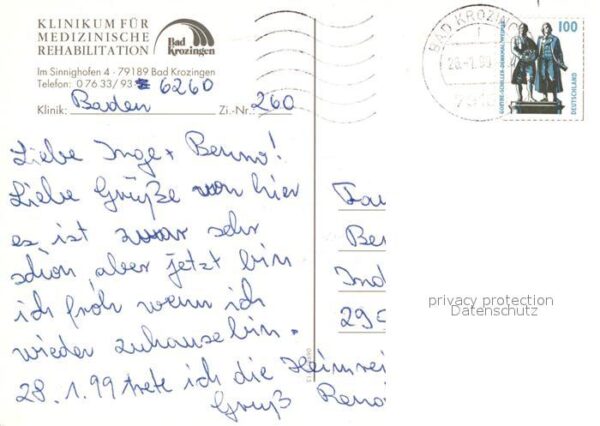 KLINIKUM FÜR
MEDIZINISCHE
REHABILITATION
Bad
Krozingen
Im Sinnighofen 4 · 79189 Bad Krozingen
Telefon: 0 76 33 / 93 6260
Klinik: Baden Zi.-Nr. 260
BAD KROZING
100
GOETHE-SCHILLER-DENKMAL WEIMAR
DEUTSCHLAND
Liebe Inge + Benno!
Liebe Grüße von hier
es ist zwar sehr
schön aber jetzt bin
ich froh wenn ich
wieder zuhause bin.
28.1.99 trete ich die Heimrei
Gruß Reno
Fau
Ben
Ind
295
privacy protection
Datenschutz